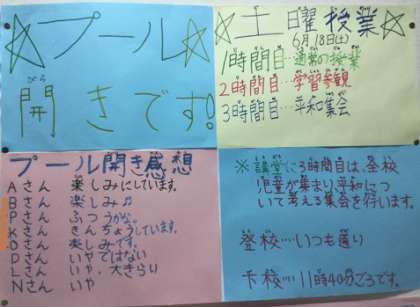 ☆プール☆
開きです!
ひら
☆土曜授業☆
6月18日(土)
1時間目…通常の授業
2時間目…学習参観
3時間目…平和集会
プール開き感想
Aさん 楽しみにしています。
Bさん 楽しみ♫
Pさん ふつうかな。
Kさん きんちょうしています。
Oさん 楽しみです。
Dさん いやではない
Lさん いや、大きらい
Nさん いや
※講堂に3時間目は、全校
児童が集まり、平和につ
いて考える集会を行います。
登校…いつも通り
下校…11時40分ごろです。